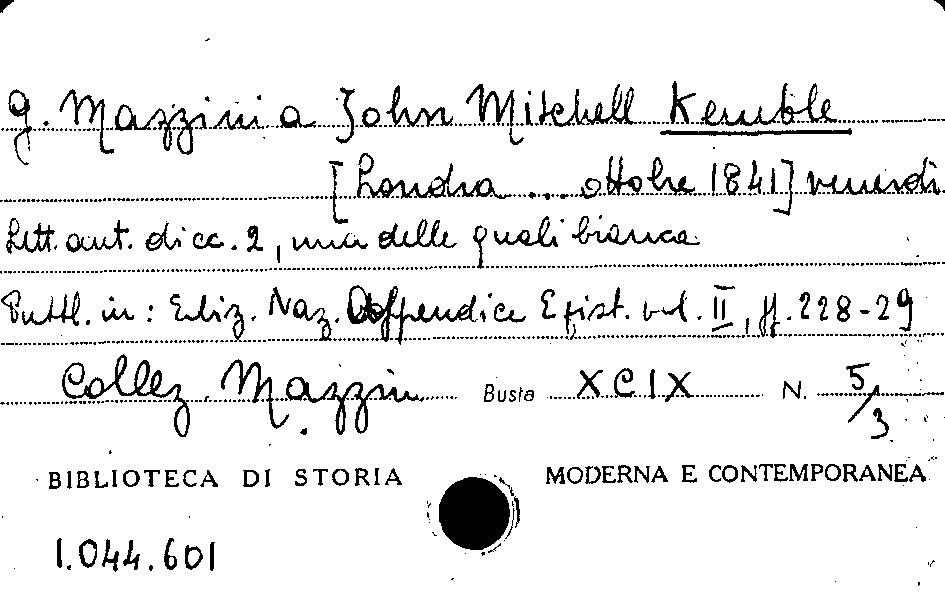 G. Mazzini a John Mitchell Kemble
[Londra ... ottobre 1841] venerdì
Lett. aut. di cc. 2, una delle quali bianca
Pubbl. in: Ediz. Naz. Appendice Epist. vol. II, pp. 228-29
Collez. Mazzini Busta XCIX N. 5/3
BIBLIOTECA DI STORIA MODERNA E CONTEMPORANEA
1.044.601